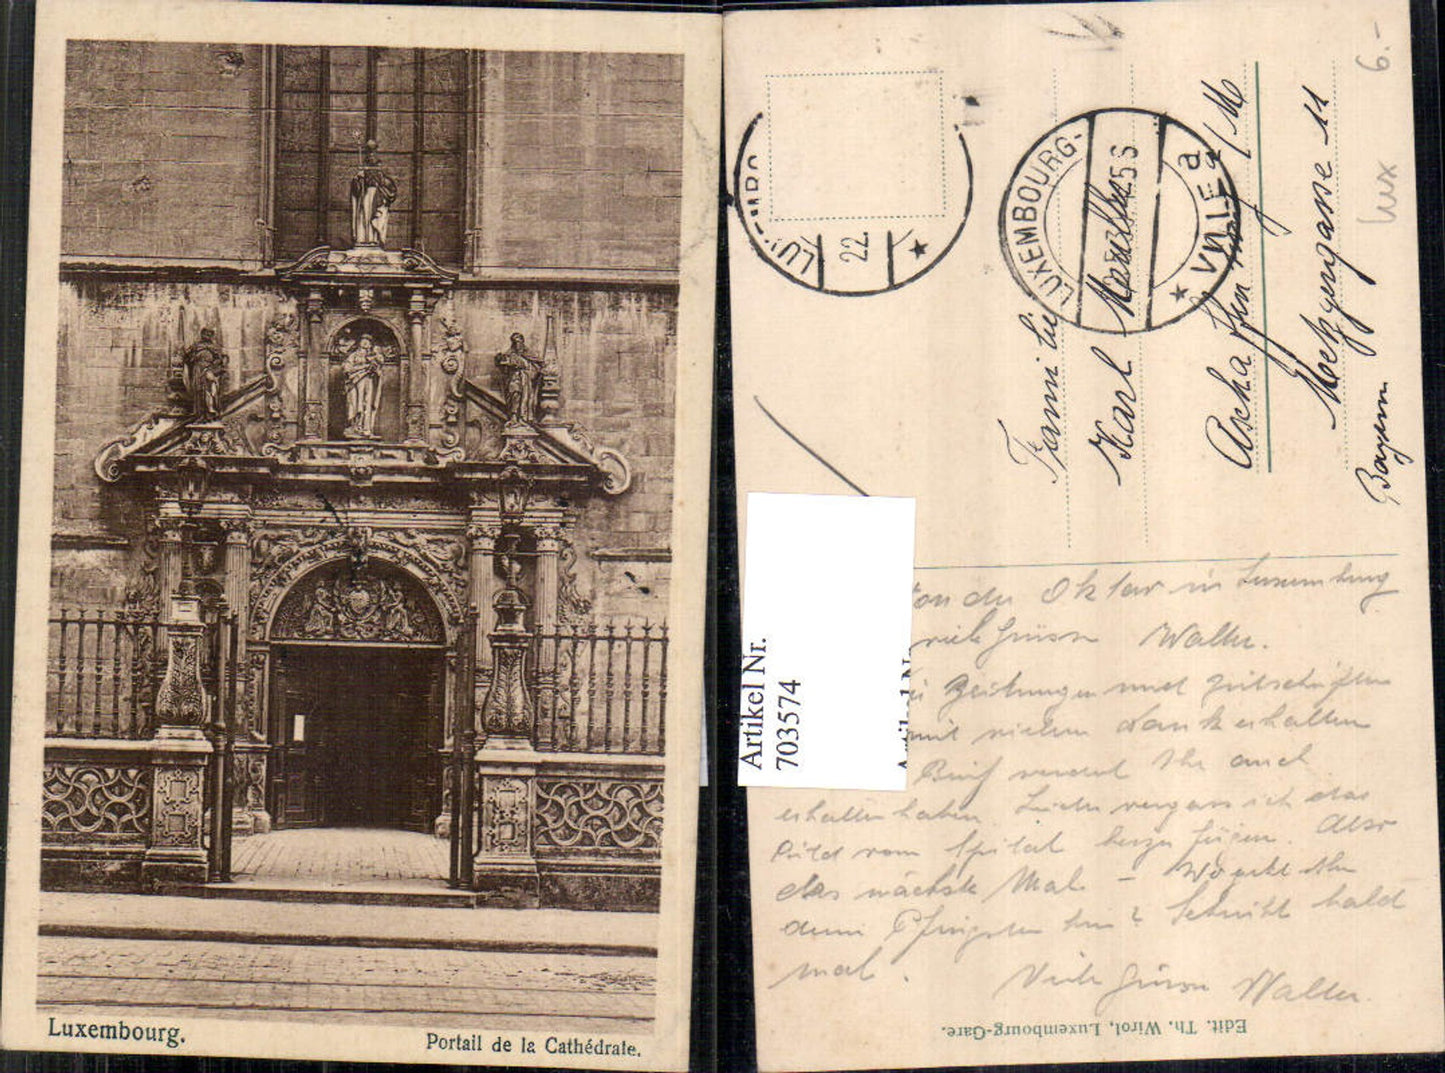 Luxembourg.
Portail de la Cathédrale.
22.
LUXEMBOURG-
a
Familie
Karl
Aschaffenburg a/M
Metzgergasse 11
Bayern
Lux
6.-
Artikel Nr.
703574
in Luxemburg
viele Grüsse Walter.
Zeitungen und Zeitschriften
mit vielem Dank erhalten
Brief werdet Ihr auch
erhalten haben. Leider vergass ich das
Bild vom Spital beizufügen. Also
das nächste Mal - Wo geht Ihr
denn Pfingsten hin? Schreibt bald
mal. Viele Grüsse Walter.
Edit. Th. Wirol, Luxembourg-Gare.